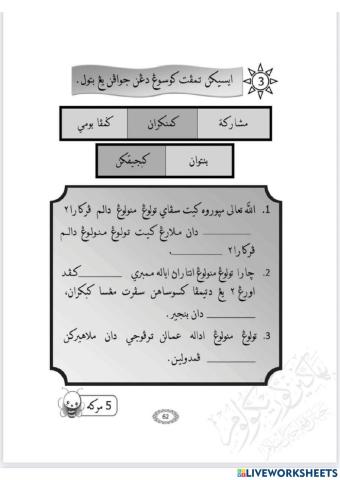 3 ايسيكن تمڤت كوسوڠ دڠن جواڤن يڠ بتول.
مشاركة كمنكران ݢمڤا بومي
بنتوان كبجيقكن
1. الله تعالى مڽوروه كيت سڤاي تولوڠ منولوڠ دالم ڤركارا٢
________ دان ملارڠ كيت تولوڠ منولوڠ دالم
ڤركارا٢ ________.
2. چارا تولوڠ منولوڠ انتاران اياله ممبري ________كڤد
اورڠ ٢ يڠ دتيمڤا كسوساهن سڤرت مڠسا كبكران،
________ دان بنجير.
3. تولوڠ منولوڠ اداله عمالن ترڤوجي دان ملاهيركن
________ ڤمدولين.
5 مركه
62
LIVEWORKSHEETS